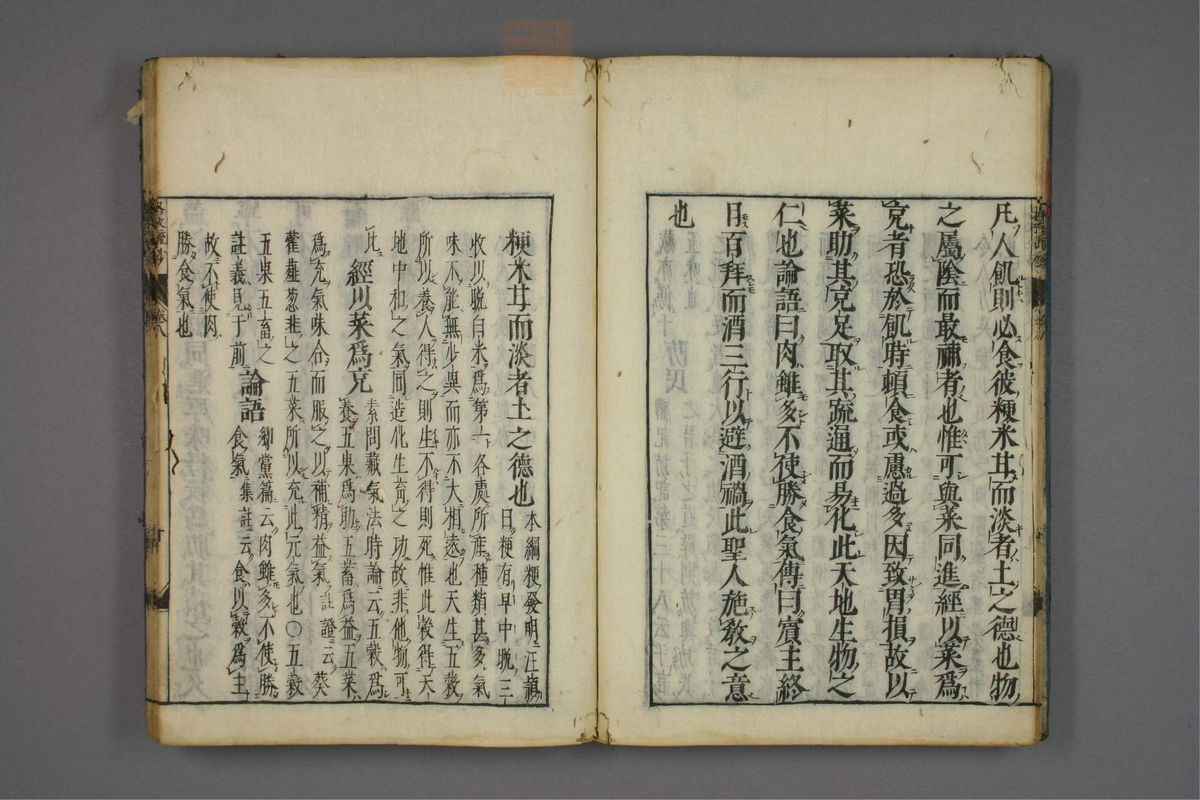 凡人飢則必食彼粳米甘而淡者土之德也物
之屬陰而最補者也惟可與菜同進經以菜爲
充者恐於飢時頓食或慮過多因致胃損故以
菜助其充足取其疏通而易化此天地生物之
仁也論語曰肉雖多不使勝食氣傳曰賓主終
日百拜而酒三行以避酒禍此聖人施敎之意
也
粳米甘而淡者土之德也本綱粳發明汪頴
曰粳有早中晩三
收以晩白米爲第一各處所產種類甚多氣
味不能無少異而亦不大相遠也天生五穀
所以養人得之則生不得則死惟此穀得天
地中和之氣同造化生育之功故非他物可
比經以菜爲充素問藏氣法時論云五穀爲
養五果爲助五畜爲益五菜
爲充氣味合而服之以補精益氣註證云葵
藿薤葱韭之五菜所以充此元氣也○五穀
五果五畜之
註義見于前論語鄉黨篇云肉雖多不使勝
食氣集註云食以穀爲主
故不使肉
勝食氣也